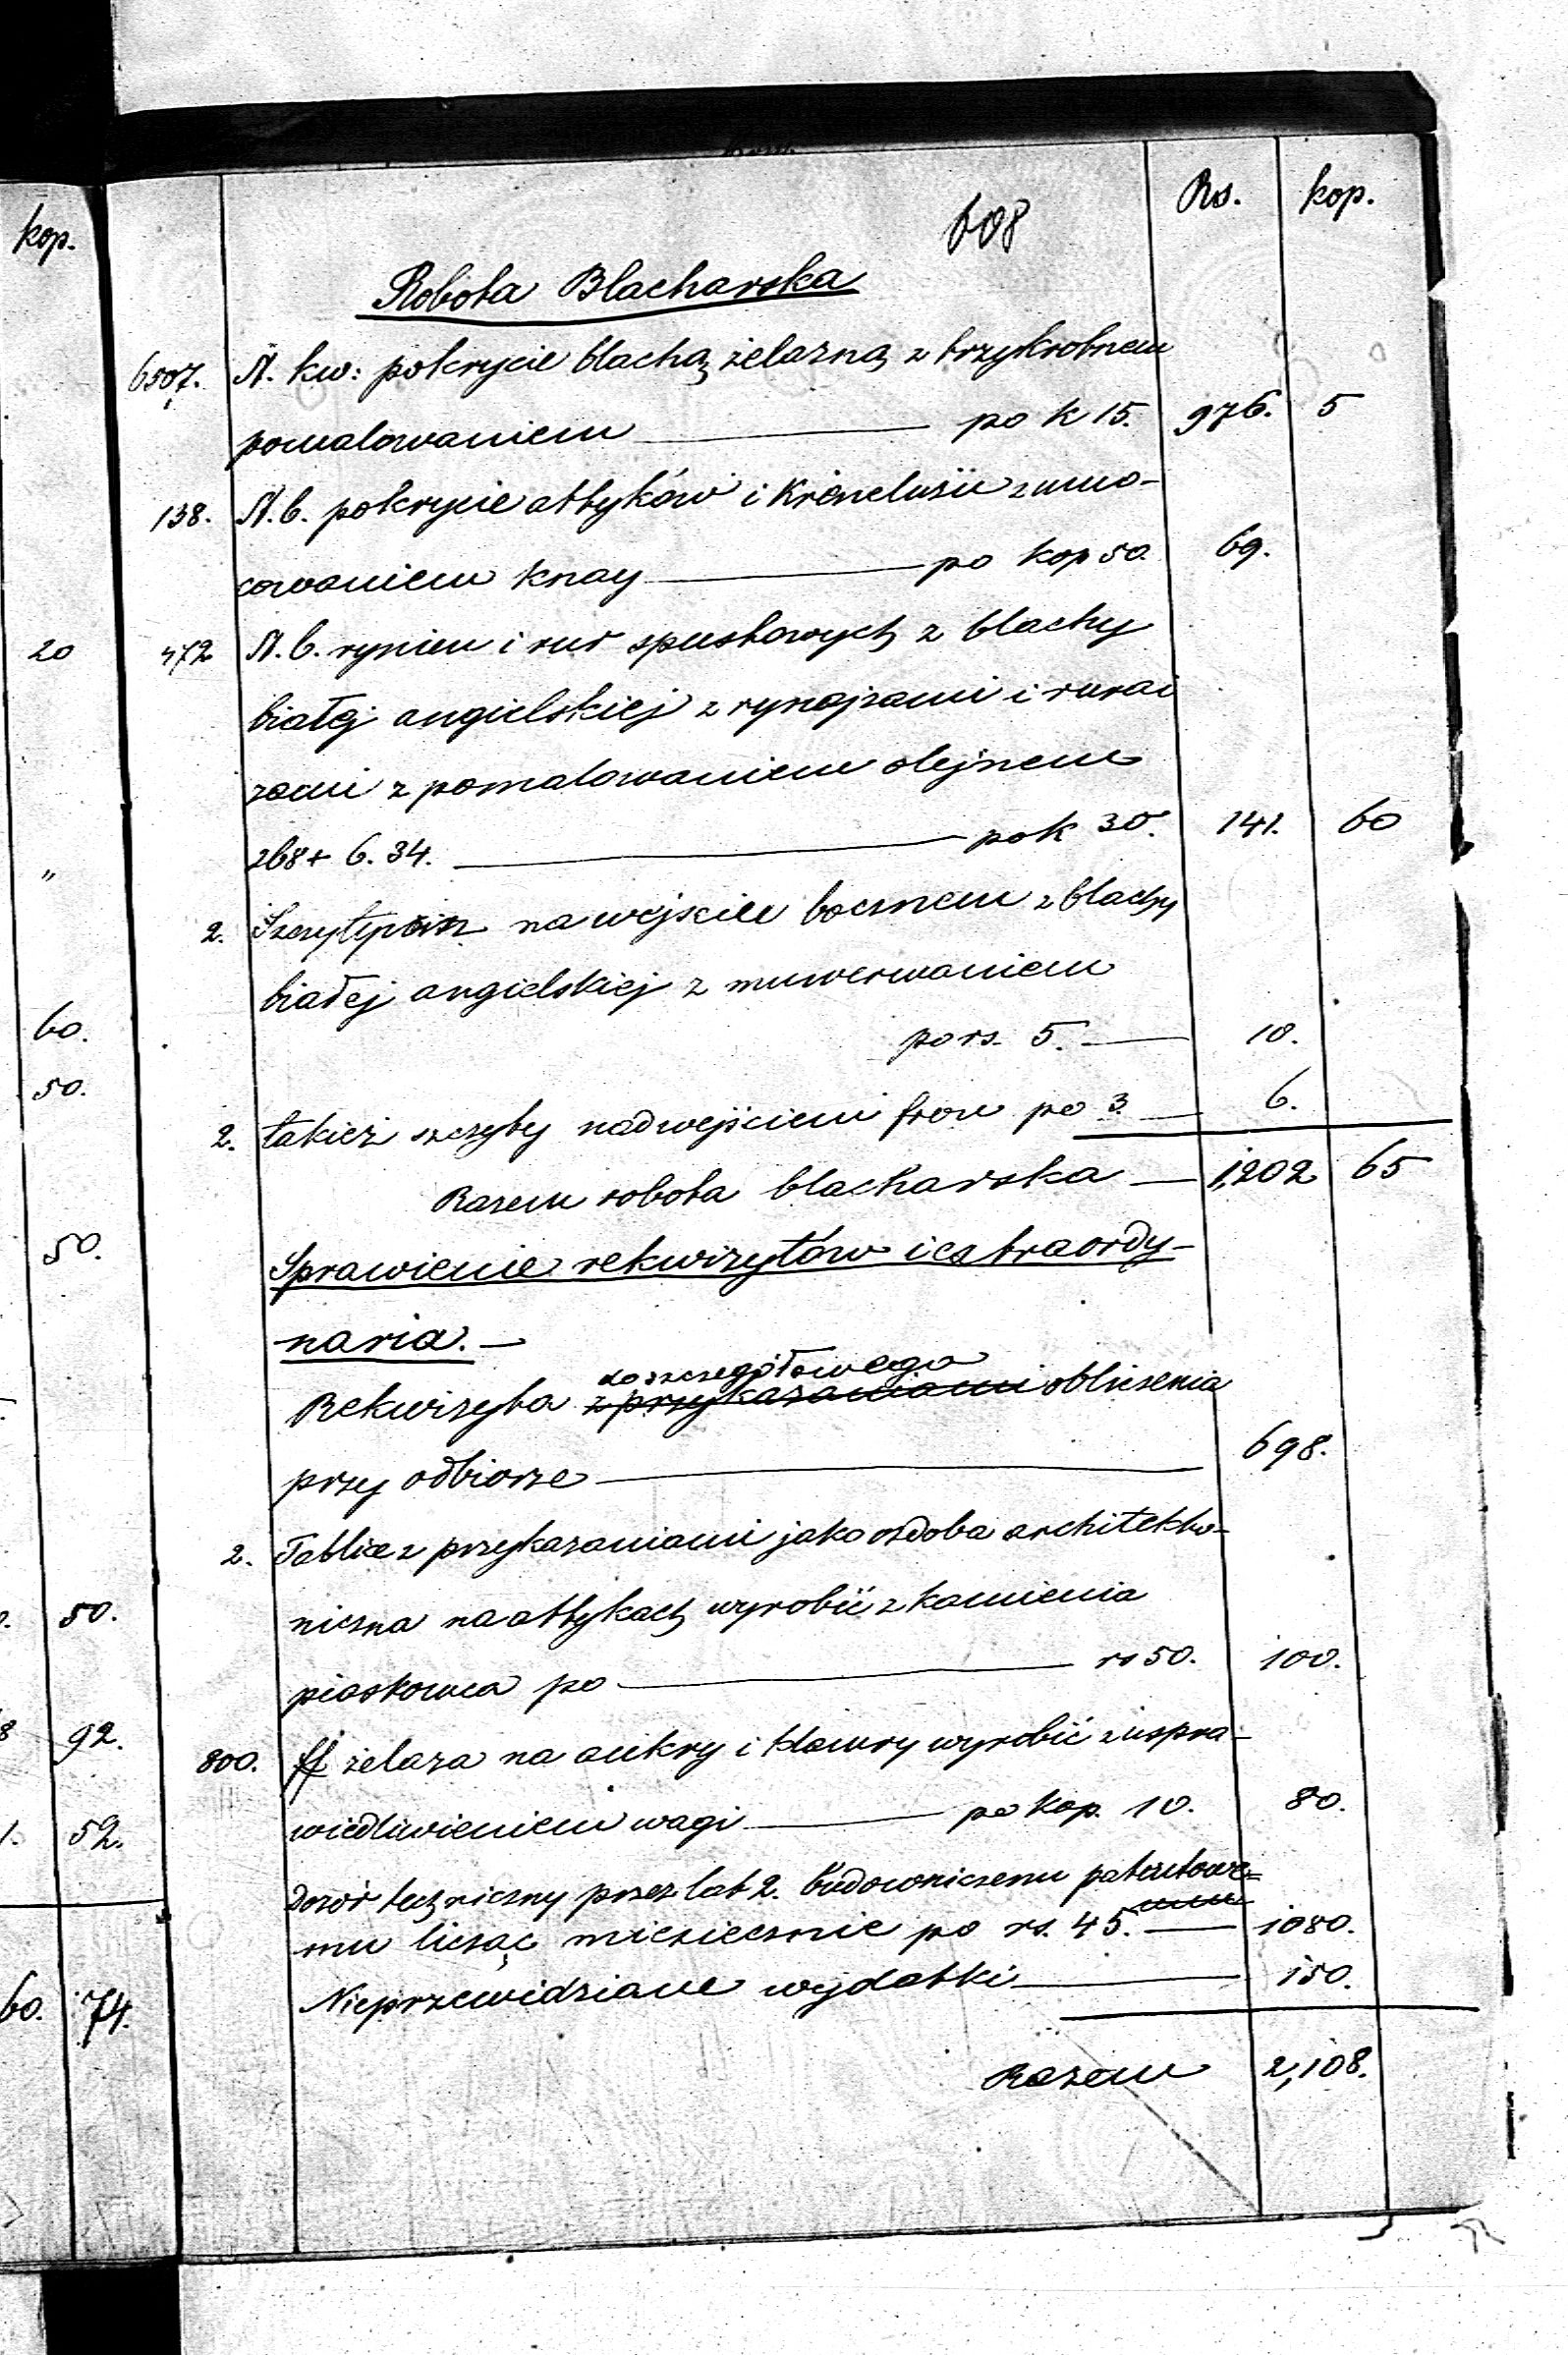 Rs. kop.
608
Robota Blacharska
6507. St. kw: pokrycie blachą żelazną z trzykrotnem
pomalowaniem — po k 15. 976. 5
138. St. b. pokrycie attyków i Krenelusii z umo-
cowaniem knag — po kop 50. 69.
472 St. b. rynien i rur spustowych z blachy
białej angielskiej z rynajzami i rurai
zami z pomalowaniem olejnem
268 + 6. 34. — po k 30. 141. 60
2. na wejście bocznem z blachy
białej angielskiej z
po rs. 5. — 10.
2. takież szczyty nad wejściem fron po 3. — 6.
Razem robota blacharska — 1,202 65
Sprawienie rekwizytów i extraordy-
naria. —
do szczegółowego
Rekwizyta z przykazaniami obliczenia
przy odbiorze — 698.
2. Tablice z przykazaniami jako ozdoba architekto-
niczna na attykach wyrobić z kamienia
piaskowca po — rs 50. 100.
800. ff żelaza na ankry i klamry wyrobić z uspra-
wiedliwieniem wagi — po kop. 10. 80.
Dozór techniczny przez lat 2. budowniczemu patentowe=
mu licząc miesiecznie po rs. 45. — 1080.
Nieprzewidziane wydatki — 150.
Razem 2,108.
kop.
20
"
60.
50.
50.
50.
92.
52.
60. 74.